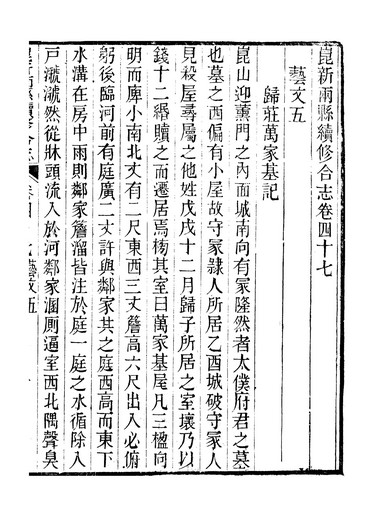 崑新兩縣續修合志卷四十七
藝文五
歸莊萬家基記
崑山迎薰門之內而城南向有冢隆然者太僕府君之墓
也墓之西偏有小屋故守冢隸人所居乙酉城破守冢人
見殺屋尋屬之他姓戊戌十二月歸子所居之室壞乃以
錢十二緡贖之而遷居焉榜其室曰萬家基屋凡三楹向
明而庳小南北丈有二尺東西三丈簷高六尺出入必俯
躬後臨河前有庭廣二丈許與鄰家共之庭西高而東下
水溝在房中雨則鄰家簷溜皆注於庭一庭之水循除入
戶㶁㶁然從牀頭流入於河鄰家溷厠逼室西北隅聲臭
崑新兩縣續修合志 卷四十七 藝文五 一